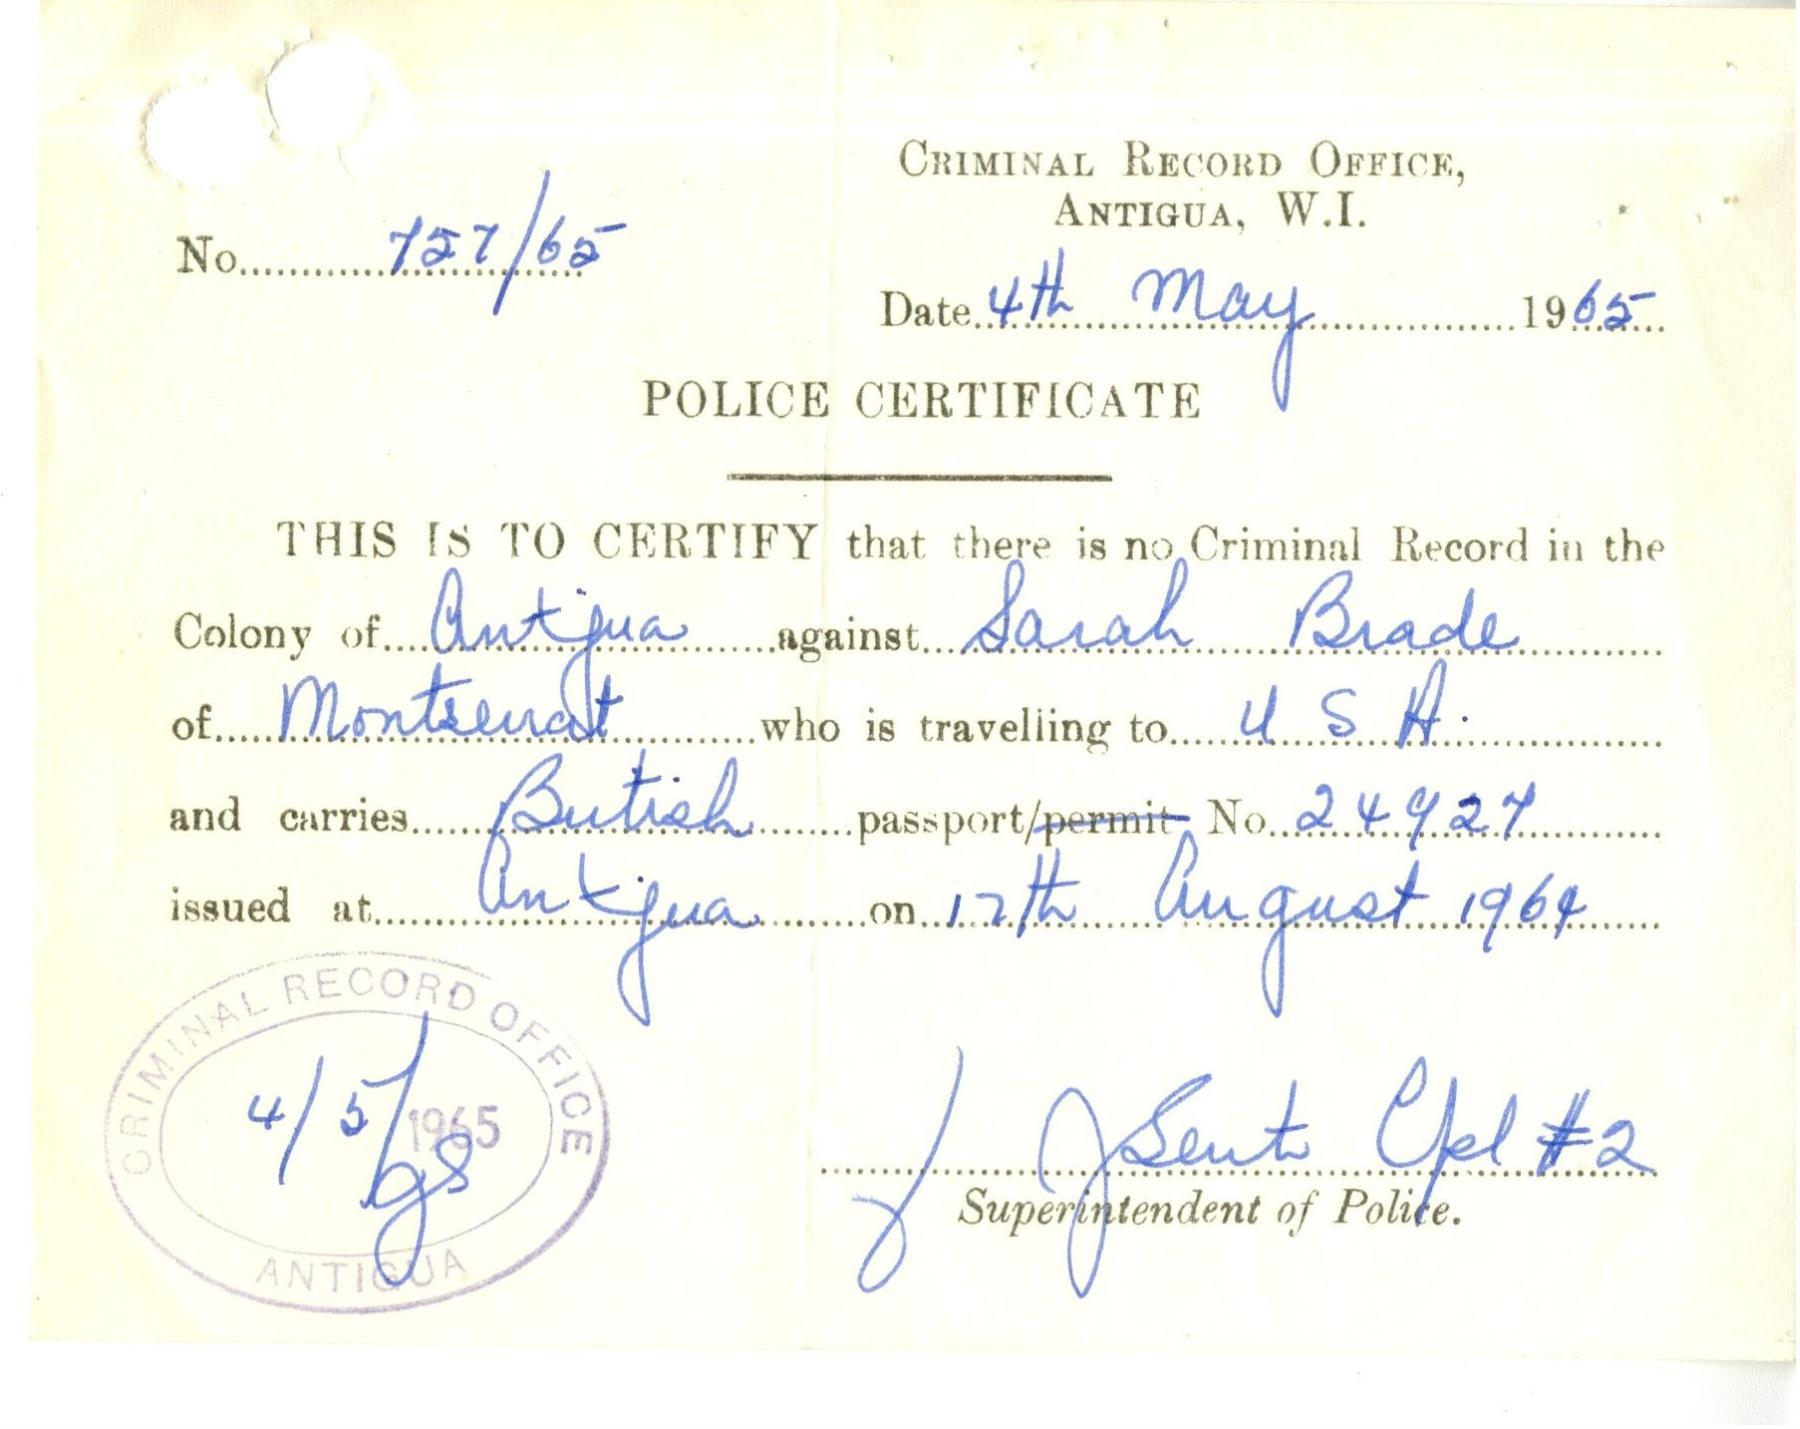 CRIMINAL RECORD OFFICE,
ANTIGUA, W.I.
No. 757/65
Date 4th May 1965
POLICE CERTIFICATE
THIS IS TO CERTIFY that there is no Criminal Record in the
Colony of Antigua against Sarah Brade
of Montserrat who is travelling to U S A.
and carries British passport/permit No. 24927
issued at Antigua on 17th August 1964
CRIMINAL RECORD OFFICE
4/5/1965
ANTIGUA
Cpl #2
Superintendent of Police.